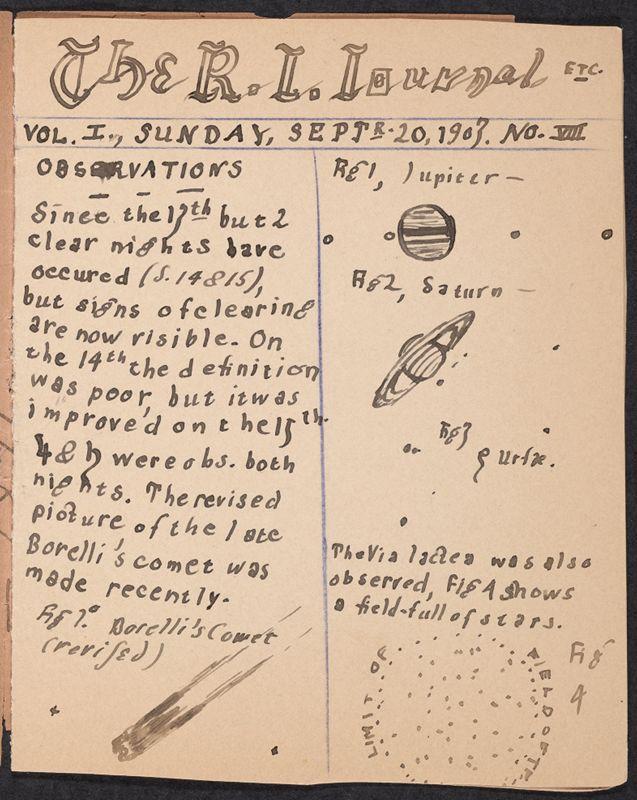 The R. I. Journal ETC.
VOL. I., SUNDAY, SEPTR. 20, 1903. NO. VIII
OBSERVATIONS
Since the 13th but 2
clear nights have
occured (S. 14 & 15),
but signs of clearing
are now visible. On
the 14th the definition
was poor, but it was
improved on the 15th.
♃ & ♄ were obs. both
nights. The revised
picture, of the late
Borelli's comet was
made recently.
Borelli's Comet
(revised)
Fig 1, Jupiter —
Fig 2, Saturn —
Fig 3
ξ Ursæ.
The Via lactea was also
observed, Fig 4 shows
a field-full of stars.
Fig
4
LIMIT OF
FIELD OF